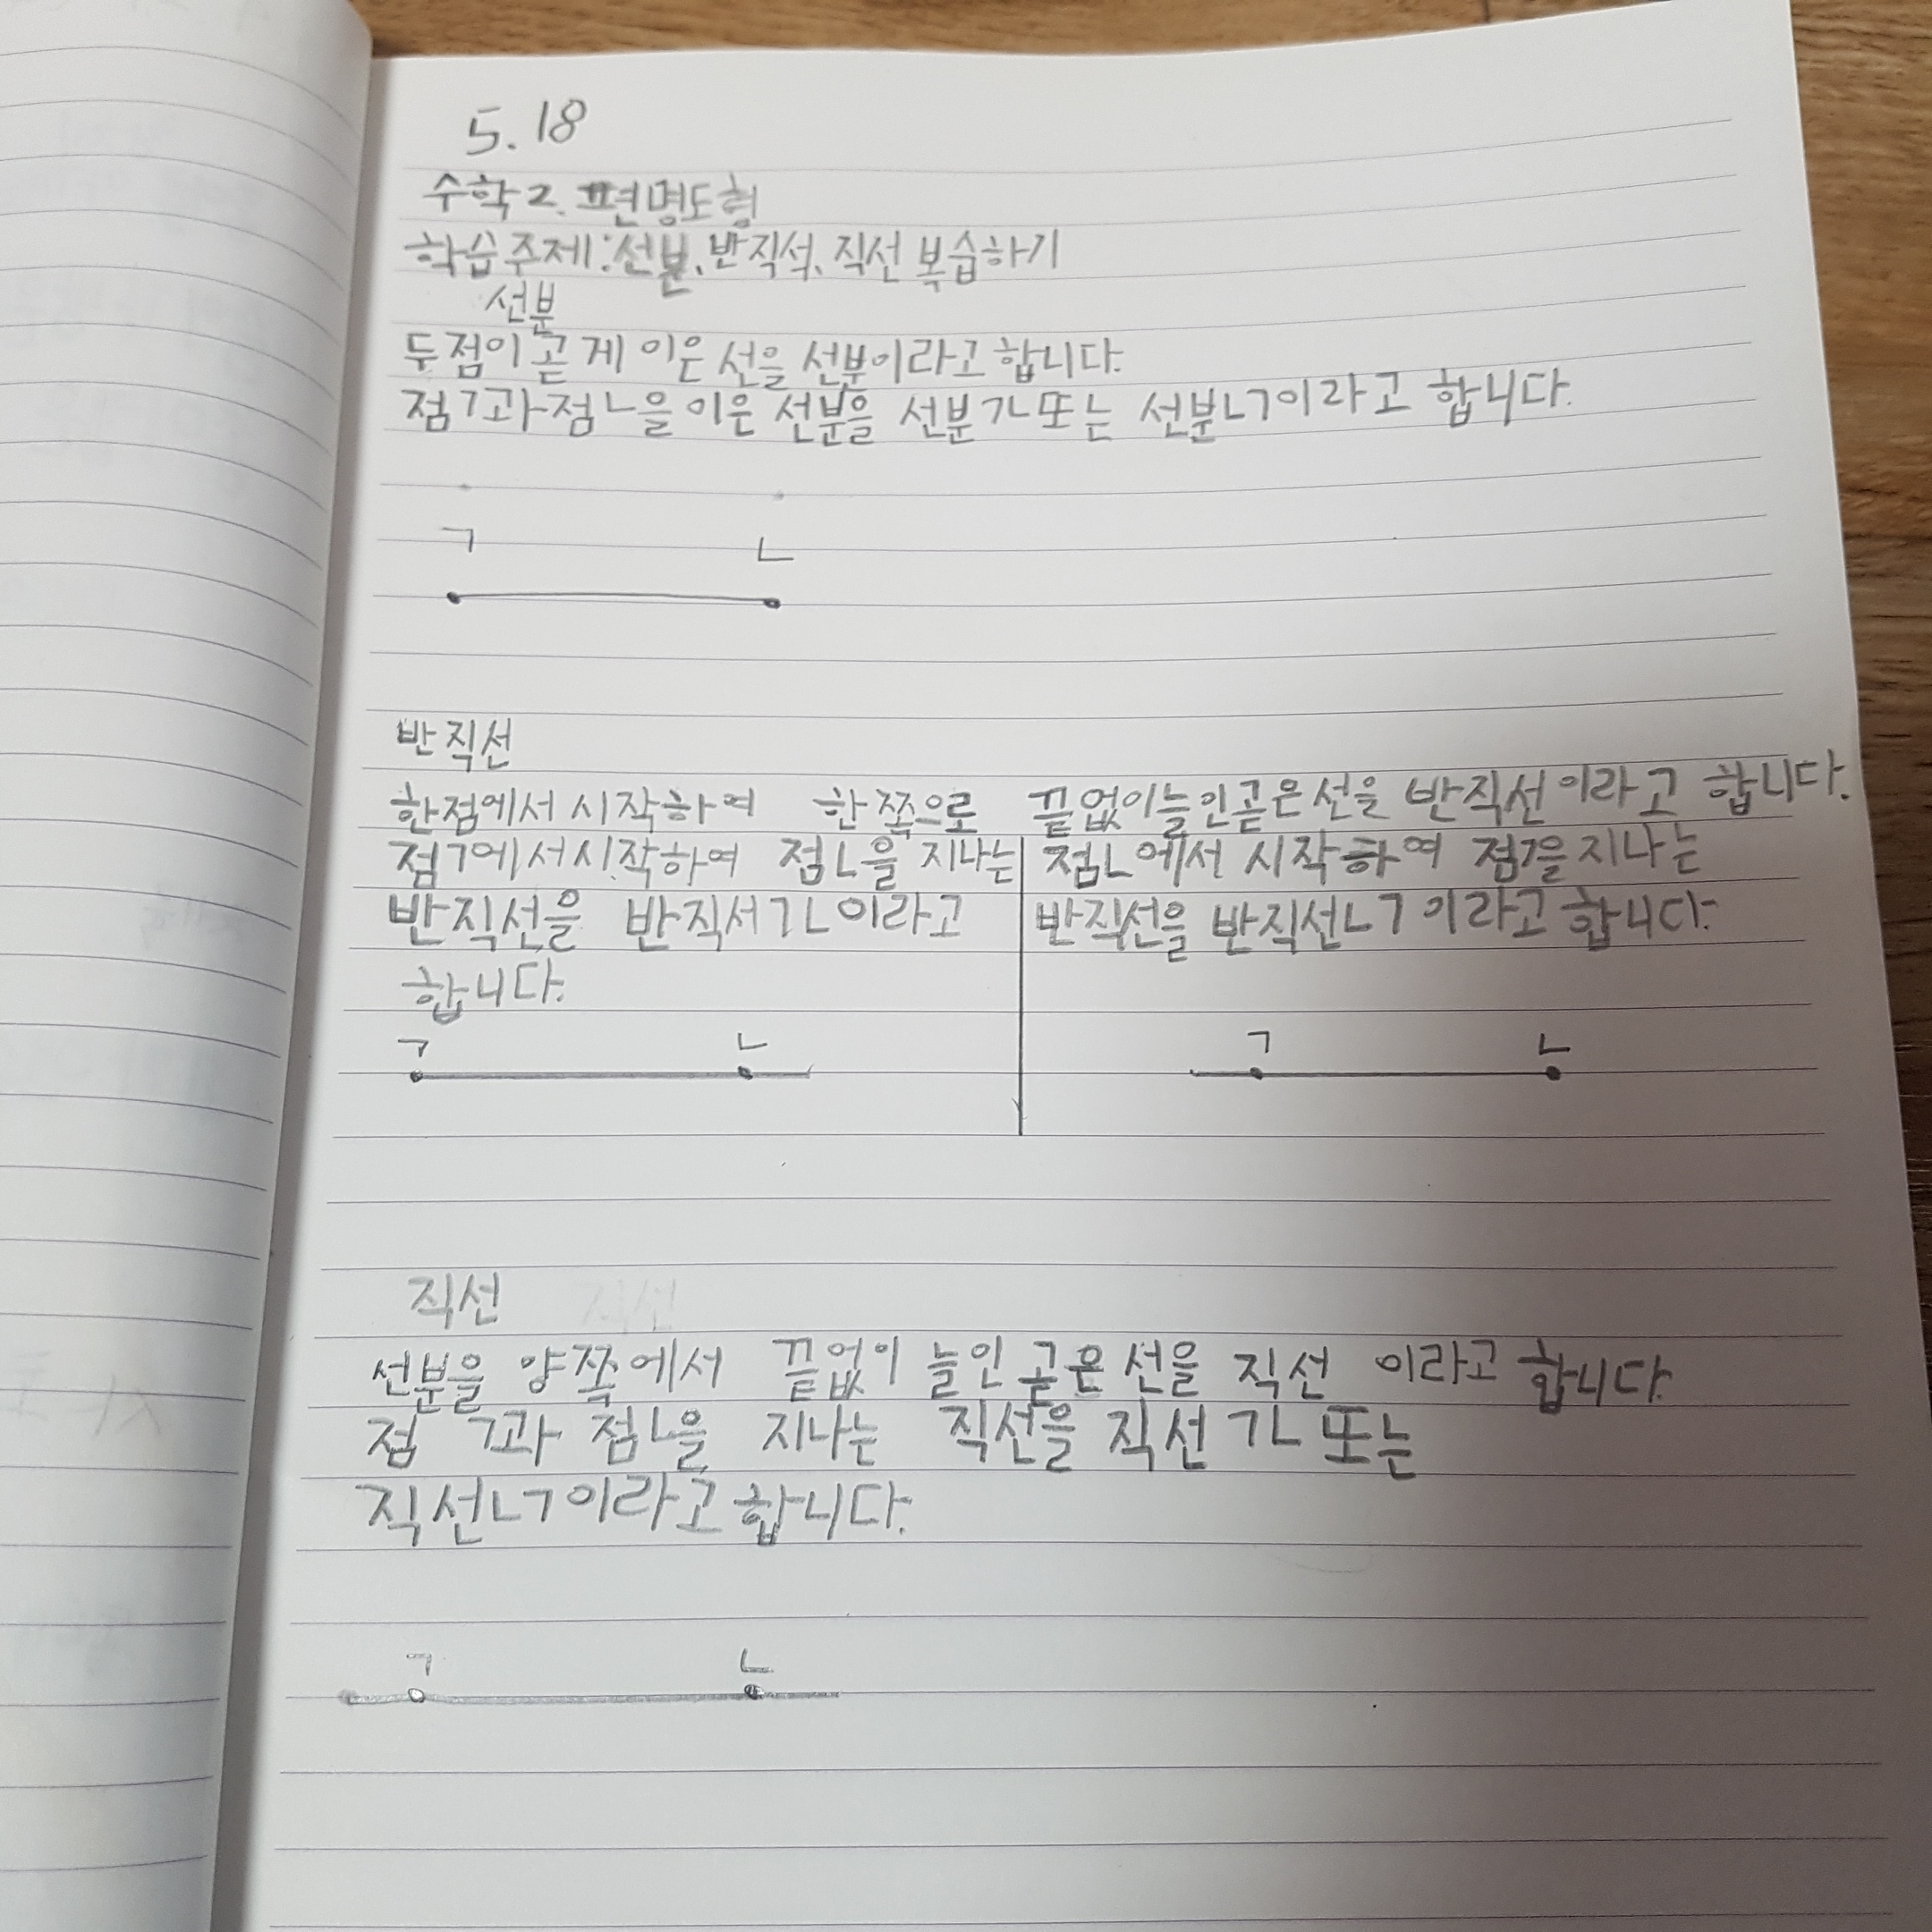 5. 18
수학 2. 편명도형
학습 주제 : 선분, 반직석, 직선 복습하기
선분
두 점이 곧 게 이은 선을 선분이라고 합니다.
점ㄱ과 점ㄴ을 이은 선분을 선분 ㄱㄴ 또는 선분ㄴㄱ이라고 합니다.
ㄱ ㄴ
반직선
한점에서 시작하여 한 쪽으로 끝없이 늘인 곧은 선을 반직선이라고 합니다.
점ㄱ에서 시작하여 점ㄴ을 지나는
반직선을 반직서ㄱㄴ이라고
합니다.
ㄱ ㄴ
점ㄴ에서 시작하여 점ㄱ을 지나는
반직선을 반직선ㄴㄱ이라고 합니다.
ㄱ ㄴ
직선
선분을 양쪽에서 끝없이 늘인 곧은 선을 직선 이라고 합니다.
점 ㄱ과 점ㄴ을 지나는 직선을 직선 ㄱㄴ 또는
직선ㄴㄱ이라고 합니다.
ㄱ ㄴ